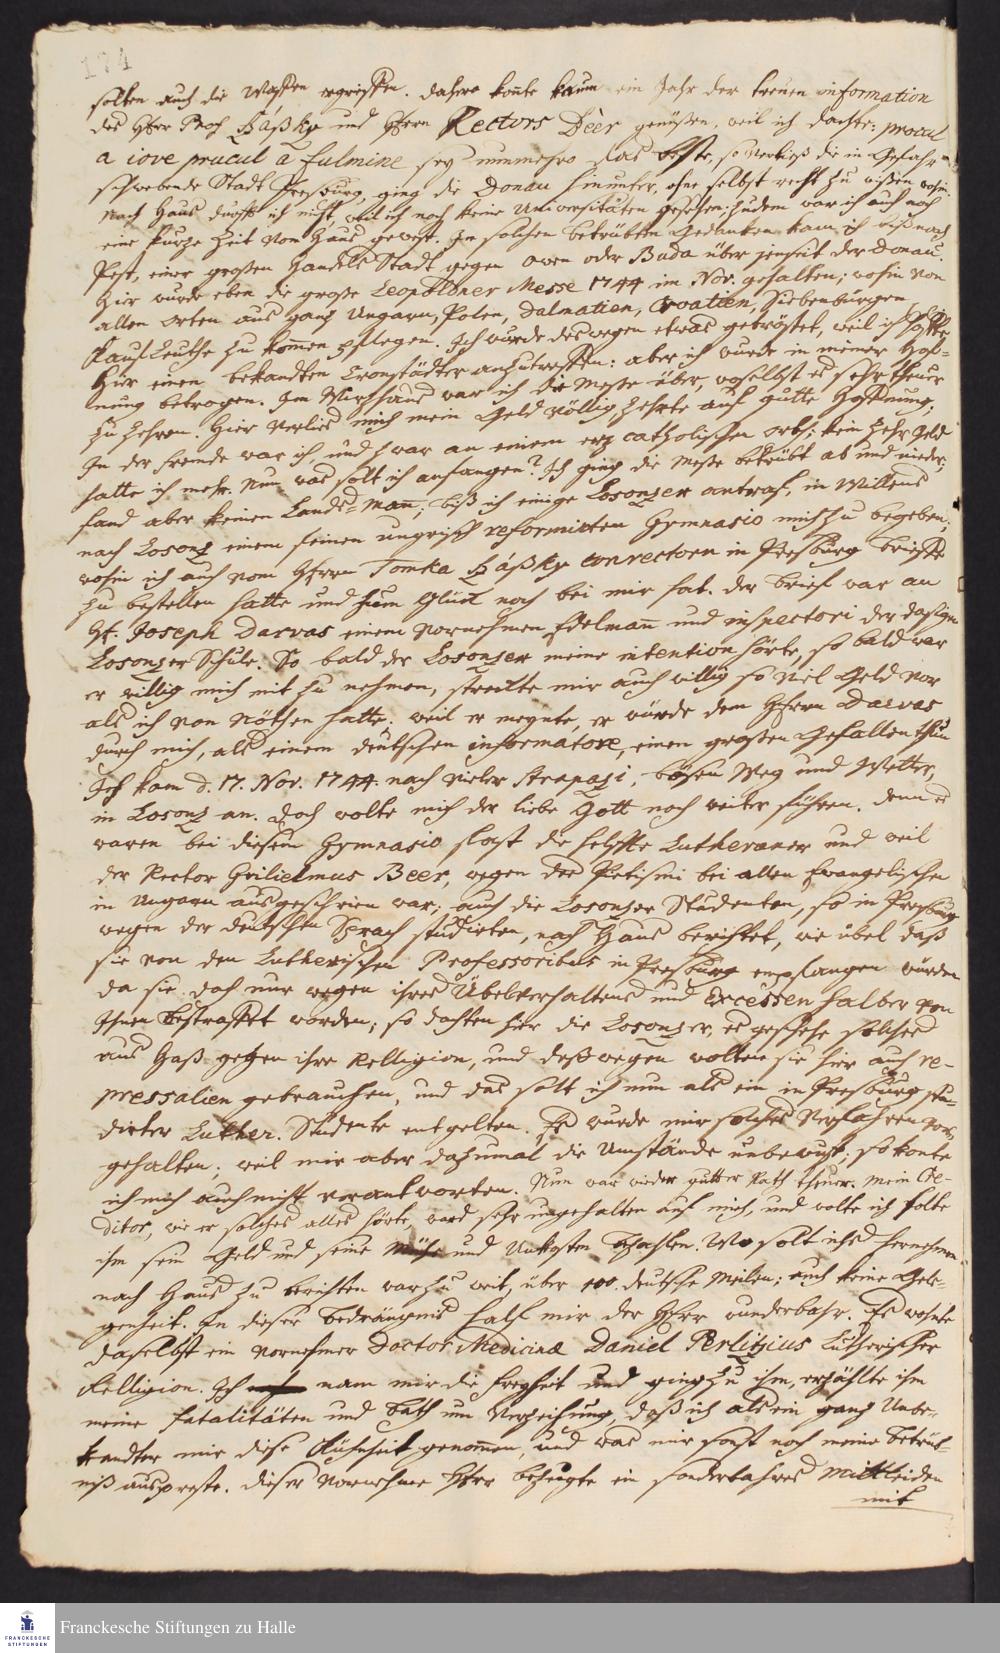 174
solten auch die Waffen ergriffen. Dahero konte kaum ein Jahr der treuen information
des Hherr Prof. Háßky und Hherrn Rectors Dèer genüßen, weil ich dachte: procul
a iove procul a fulmine sey nunmehro das beste, so verließ die in Gefahr
schwebende Stadt Presburg, ging die Donau hinunter, ohne selbst recht zu wißen wohin.
Nach Haus durfft ich nicht, weil ich noch keine Universitäten gesehen; zudem war ich auch noch
eine kurze Zeit vom Haus gewest. In solchen betrübten Gedanken kam ich biß nach
Pest, einer großen Handels Stadt gegen Ofen oder Buda über jenseit der Donau.
Hir wurde eben die große Leopoldner Messe 1744 im Nov. gehalten; wohin von
allen Orten aus ganz Ungarn, Polen, Dalmatien, Croatien, Siebenbürgen,
Kauf Leuthe zu kommen pflegen. Ich wurde deswegen etwas getröstet, weil ich hoffte
hier einen bekandten Cronstädter anzutreffen: aber ich wurde in meiner Hof-
nung betrogen. Im Wirthshaus war ich die Messe über, woselbst es sehr theuer
zu zehren. Hier verlies mich mein Geld völlig, zehrte auf gutte Hoffnung;
In der Fremde war ich, und zwar an einem erz catholischen Ort; kein Zehr Geld
hatte ich mehr. Nun was solt ich anfangen? Ich ging die Messe betrübt ab und nieder;
fand aber keinen Lands-Mann; biß ich einige Losonzer antraf, in Willens
nach Losonz einem feinen ungrisch reformirten Gymnasio mich zu begeben;
wohin ich auch vom Hherrn Tomka Háßky Conrectorn in Presburg Brieffe
zu bestellen hatte und zum Glück noch bei mir hat. Der Brief war an
H. Joseph Darvas einem vornehmen Edelmann und inspectori der dasigen
Losonzer Schule. So bald der Losonzer meine intention hörte, so bald war
er willig mich mit zu nehmen, streckte mir auch willig so viel Geld vor
als ich von nöthen hatte. weil er meynte, er würde dem Hherrn Darvas
durch mich, als einem deutschen informatore, einen großen Gefallen thun
Ich kam d. 17. Nov. 1744. nach vieler Strapazi, bösen Weg und Wetter,
in Losonz an. Doch wolte mich der liebe Gott noch weiter führen. Denn es
waren bei diesem Gymnasio fast die helffte Lutheraner und weil
der Rector Guilielmus Beer, wegen des Pietismi bei allen Evangelischen
in Ungarn ausgeschrien war; auch die Losonzer Studenten, so in Presburg
wegen der deutschen Sprach studirten, nach Haus berichtet, wie übel daß
sie von den Lutherischen Professoribus in Presburg empfangen würden
da sie doch nur wegen ihres Übelverhaltens und Excessen halber von
Ihnen bestrafft worden; so dachten hier die Losonzer, es geschehe solches
aus Haß gegen ihre Relligion, und deßwegen wolten sie hier auch re-
pressalien gebrauchen, und das solt ich nun als ein in Presburg stu-
dirter Luther. Studente entgelten. Es wurde mir solches Verfahren vor-
gehalten; weil mir aber dazumal die Umstände unbewust; so konte
ich mich auch nicht verantworten. Nun war wieder gutter Rath theuer. Mein Cre-
ditor, wie er solches alles hörte, ward sehr ungehalten auf mich, und wolte ich solte
ihm sein Geld und seine Mühe und Unkosten bezahlen. Wo solt ichs hernehmen
nach Haus zu berichten war zu weit, über 100. deutsche Meilen; auch keine Gele-
genheit. In dieser Bedrängnis half mir der HErr wunderbahr. Es wohnte
daselbst ein vornehmer Doctor Medicinæ Daniel Perlitzius Lutherischer
Relligion. Ich nam mir die Freyheit und ging zu ihm, erzählte ihm
meine Fatalitäten und bath um Verzeihung, daß ich als ein ganz Unbe-
kandter mir diese Kühnheit genommen, und was mir sonst noch meine Betrüb-
niß auspreste. Dieser vornehme Hherr bezeugte ein sonderbahres Mittleiden
mit
Franckesche Stiftungen zu Halle
FRANCKESCHE
STIFTUNGEN